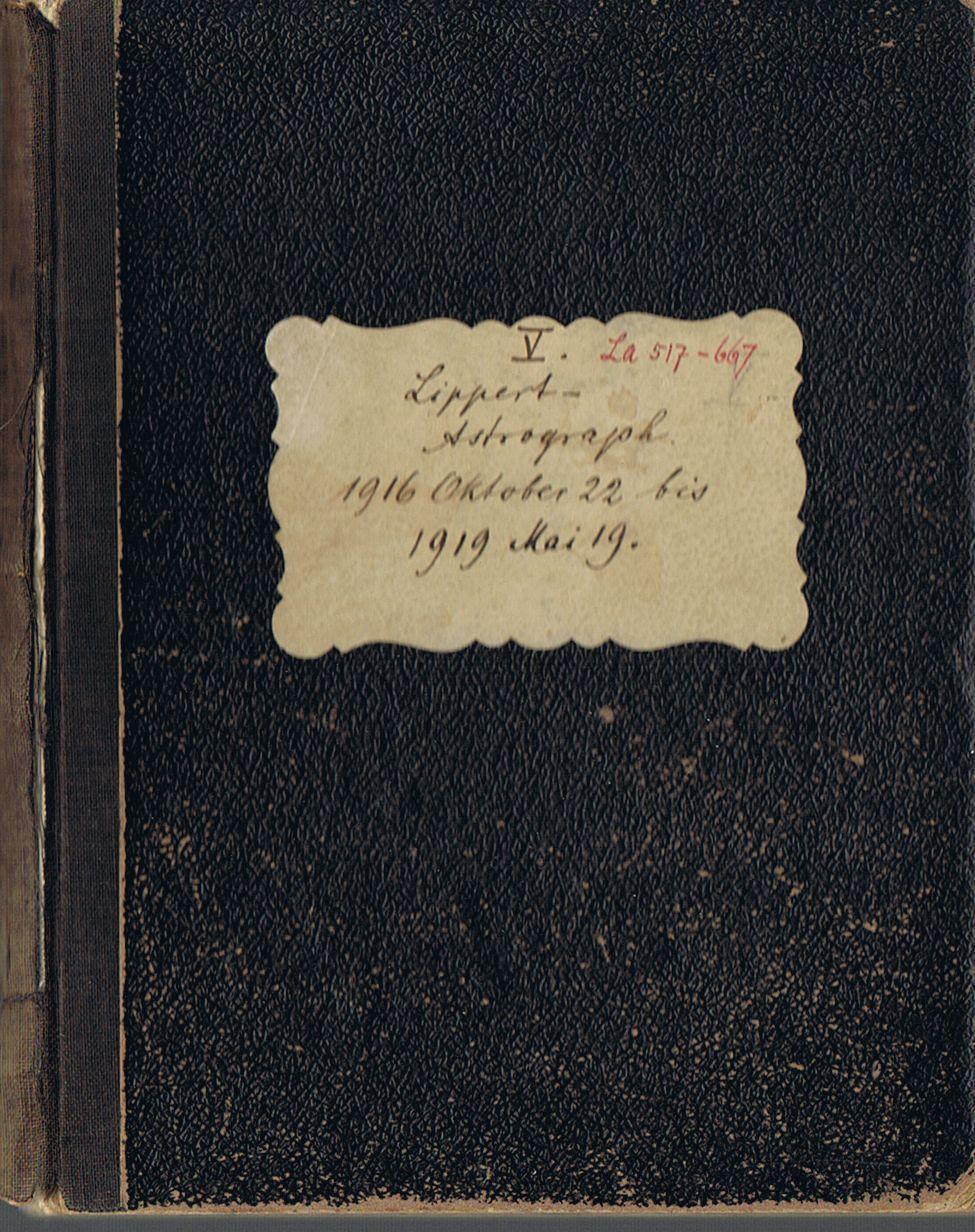 V. La 517-667
Lippert-
Astrograph.
1916 Oktober 22 bis
1919 Mai 19.